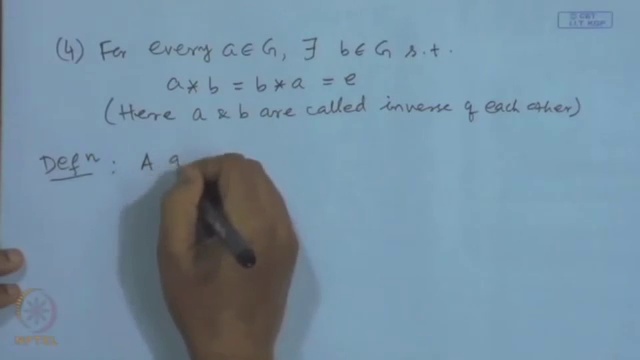 (4) For every a ∈ G, ∃ b ∈ G s.t.
a * b = b * a = e
(Here a & b are called inverse of each other)
Defⁿ : A g
© CET
I.I.T. KGP
NPTEL